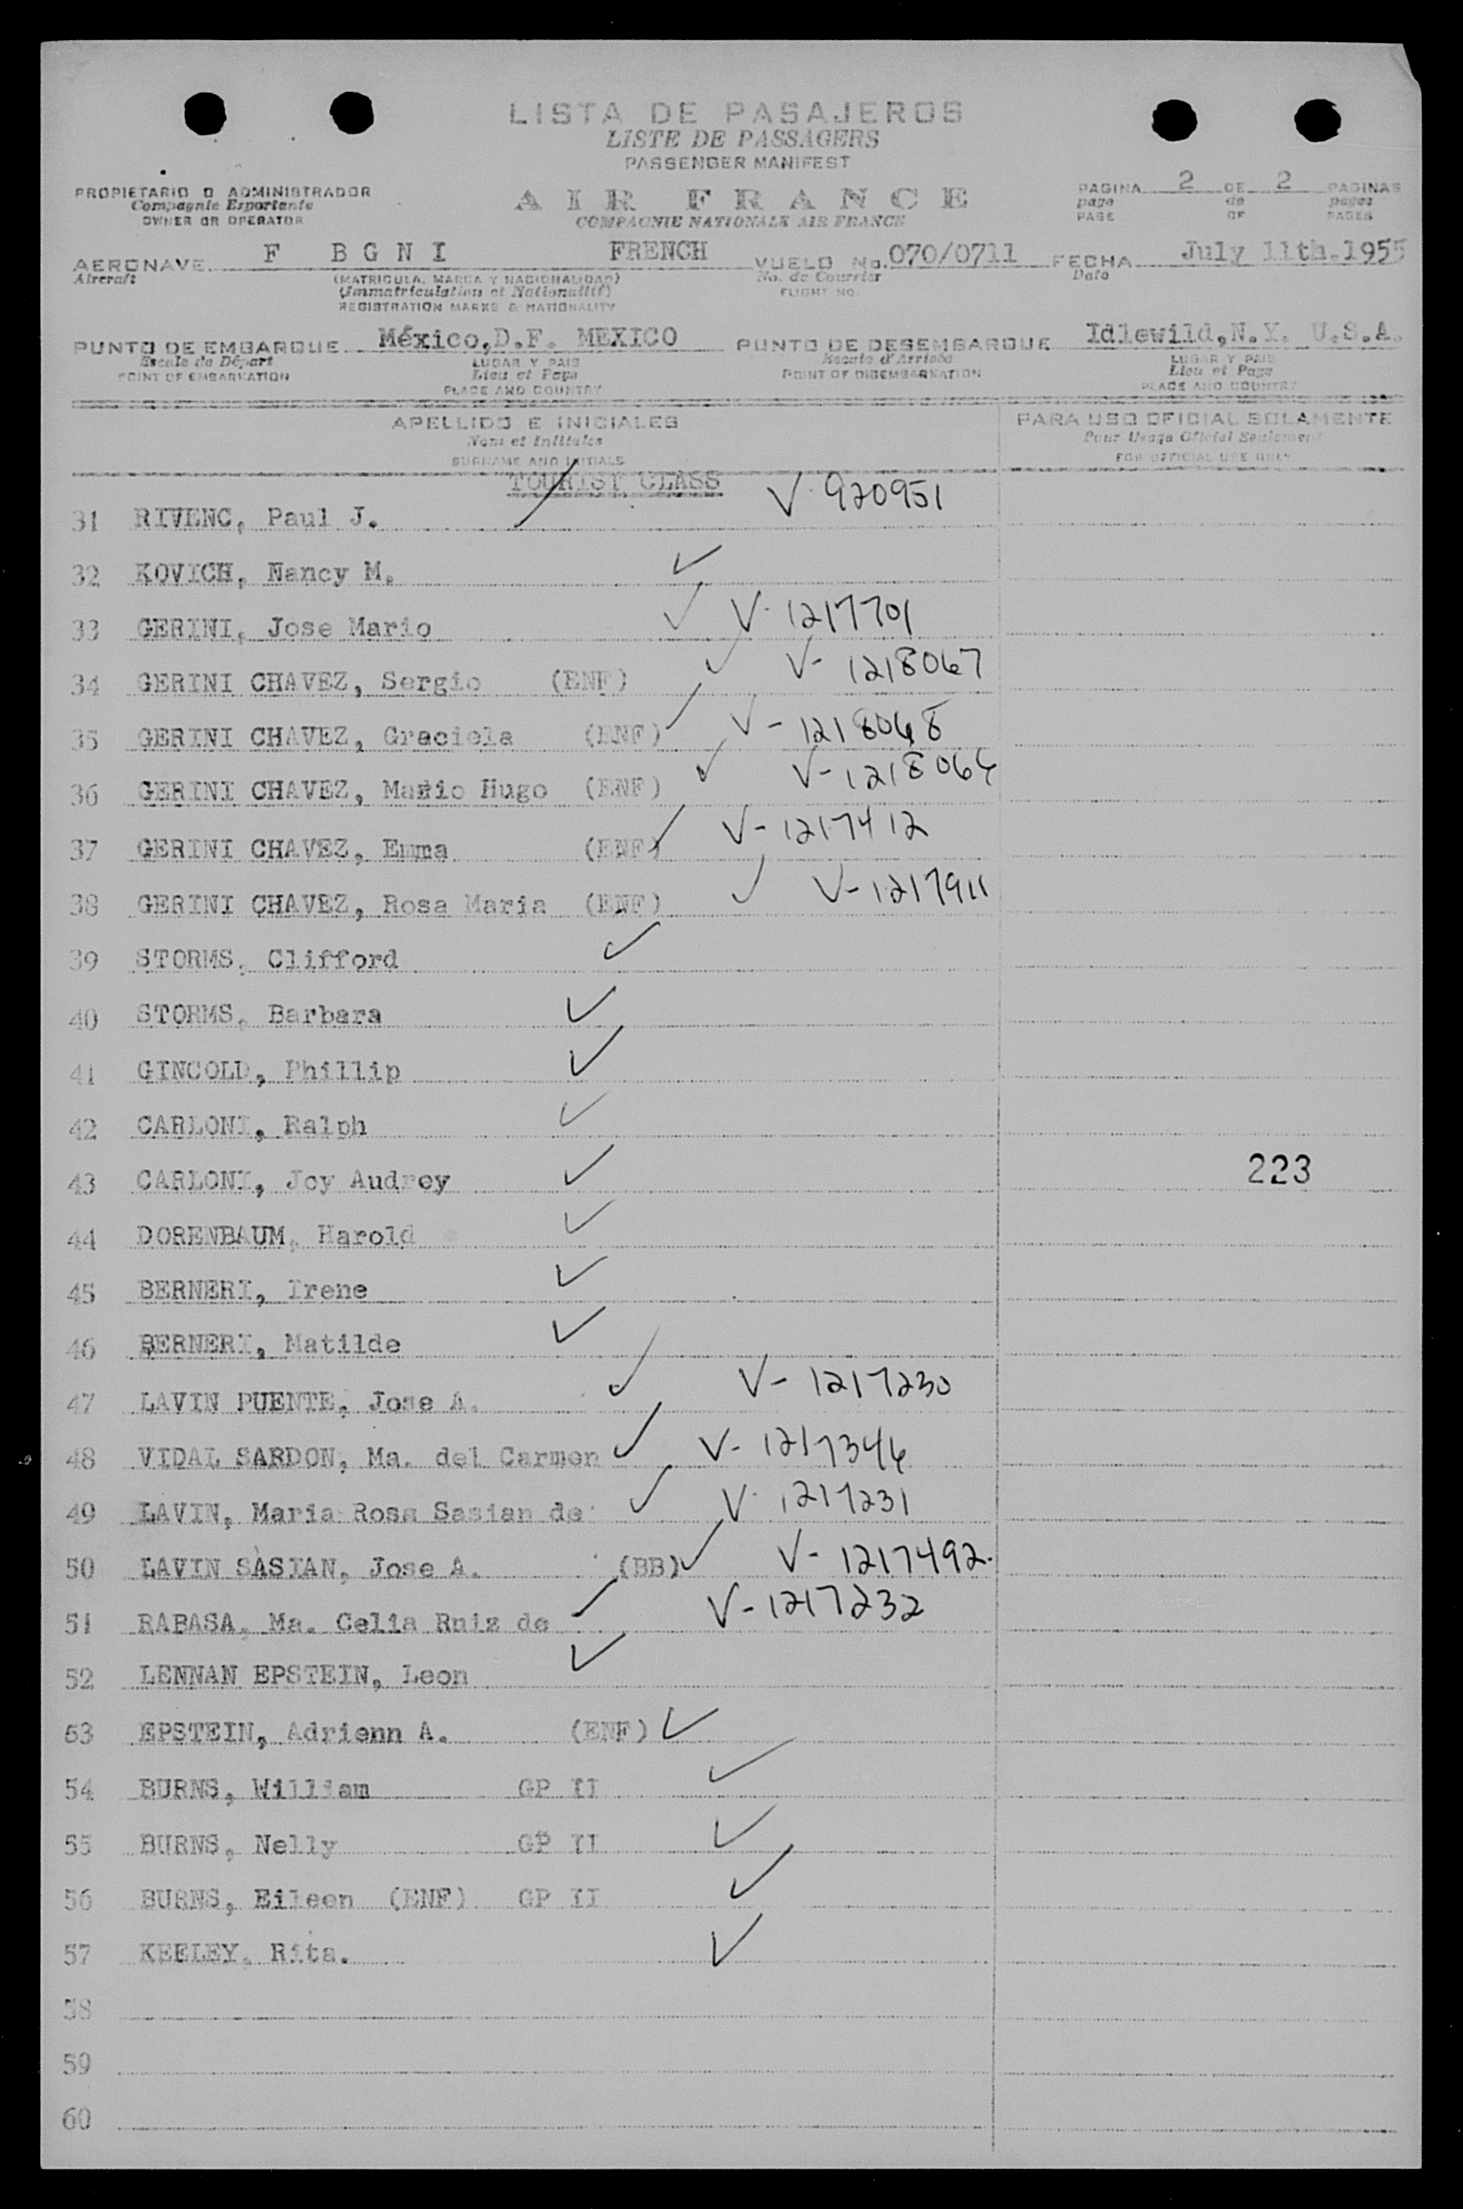 LISTA DE PASAJEROS
LISTE DE PASSAGERS
PASSENGER MANIFEST
PROPIETARIO O ADMINISTRADOR
Compagnie Exportante
OWNER OR OPERATOR
AIR FRANCE
COMPAGNIE NATIONALE AIR FRANCE
PAGINA 2 DE 2 PAGINAS
page de pages
PAGE OF PAGES
AERONAVE F BGNI FRENCH VUELO No. 070/0711 FECHA July 11th.1955
Aircraft (MATRICULA, MARCA Y NACIONALIDAD) No. de Courrier Date
(Immatriculation et Nationalité) FLIGHT NO.
REGISTRATION MARKS & NATIONALITY
PUNTO DE EMBARQUE México,D.F. MEXICO PUNTO DE DESEMBARQUE Idlewild,N.Y. U.S.A.
Escale de Départ LUGAR Y PAIS Escale d'Arrivée LUGAR Y PAIS
POINT OF EMBARKATION Lieu et Pays POINT OF DISEMBARKATION Lieu et Pays
PLACE AND COUNTRY PLACE AND COUNTRY
APELLIDO E INICIALES PARA USO OFICIAL SOLAMENTE
Nom et Initiales Pour Usage Officiel Seulement
SURNAME AND INITIALS FOR OFFICIAL USE ONLY
TOURIST CLASS
31 RIVENC, Paul J. V-920951
32 KOVICH, Nancy M.
33 GERINI, Jose Mario V-1217701
34 GERINI CHAVEZ, Sergio (ENF) V-1218067
35 GERINI CHAVEZ, Graciela (ENF) V-1218068
36 GERINI CHAVEZ, Mario Hugo (ENF) V-1218064
37 GERINI CHAVEZ, Emma (ENF) V-1217412
38 GERINI CHAVEZ, Rosa Maria (ENF) V-1217911
39 STORMS, Clifford
40 STORMS, Barbara
41 GINCOLD, Phillip
42 CARLONI, Ralph
43 CARLONI, Joy Audrey 223
44 DORENBAUM, Harold
45 BERNERI, Irene
46 BERNERI, Matilde
47 LAVIN PUENTE, Jose A. V-1217230
48 VIDAL SARDON, Ma. del Carmen V-1217346
49 LAVIN, Maria Rosa Sasian de V-1217231
50 LAVIN SASIAN, Jose A. (BB) V-1217492.
51 RABASA, Ma. Celia Ruiz de V-1217232
52 LENNAN EPSTEIN, Leon
53 EPSTEIN, Adrienn A. (ENF)
54 BURNS, William GP II
55 BURNS, Nelly GP II
56 BURNS, Eileen (ENF) GP II
57 KEELEY, Rita.
58
59
60